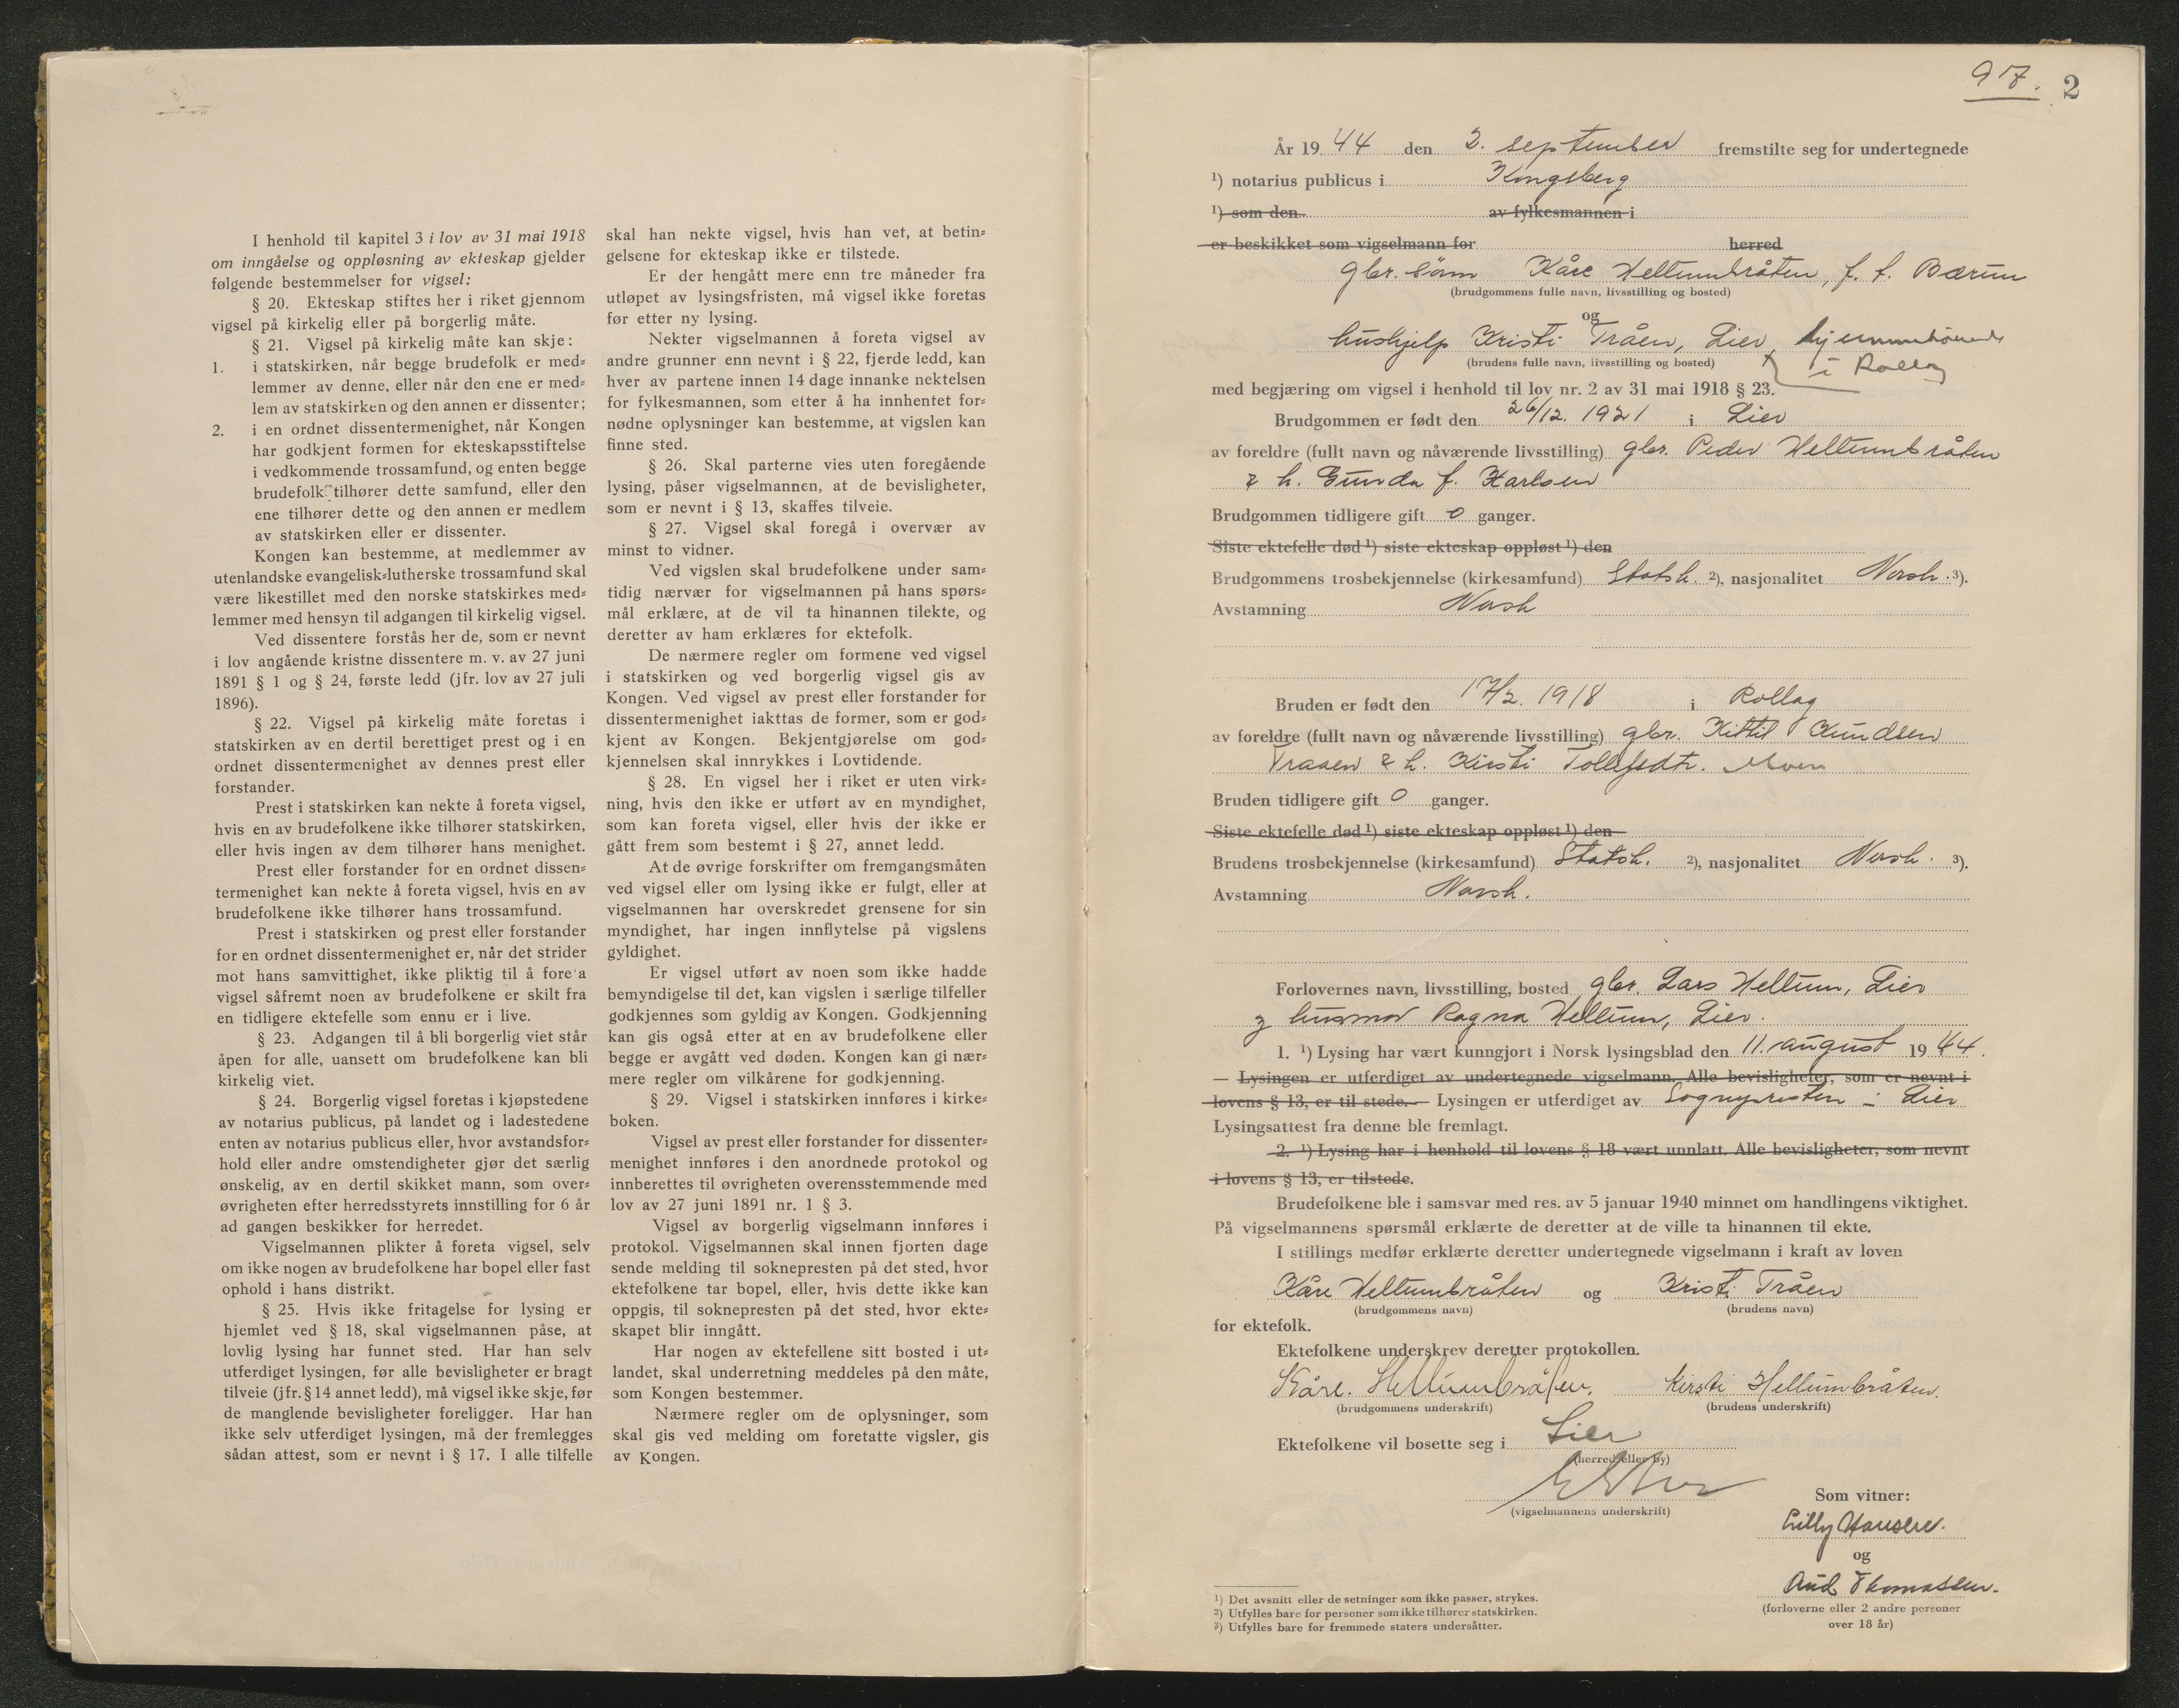 I henhold til kapitel 3 i lov av 31 mai 1918
om inngåelse og oppløsning av ekteskap gjelder
følgende bestemmelser for vigsel:
§ 20. Ekteskap stiftes her i riket gjennom
vigsel på kirkelig eller på borgerlig måte.
§ 21. Vigsel på kirkelig måte kan skje:
1. i statskirken, når begge brudefolk er med=
lemmer av denne, eller når den ene er med=
lem av statskirken og den annen er dissenter;
2. i en ordnet dissentermenighet, når Kongen
har godkjent formen for ekteskapsstiftelse
i vedkommende trossamfund, og enten begge
brudefolk tilhører dette samfund, eller den
ene tilhører dette og den annen er medlem
av statskirken eller er dissenter.
Kongen kan bestemme, at medlemmer av
utenlandske evangelisk=lutherske trossamfund skal
være likestillet med den norske statskirkes med=
lemmer med hensyn til adgangen til kirkelig vigsel.
Ved dissentere forstås her de, som er nevnt
i lov angående kristne dissentere m. v. av 27 juni
1891 § 1 og § 24, første ledd (jfr. lov av 27 juli
1896).
§ 22. Vigsel på kirkelig måte foretas i
statskirken av en dertil berettiget prest og i en
ordnet dissentermenighet av dennes prest eller
forstander.
Prest i statskirken kan nekte å foreta vigsel,
hvis en av brudefolkene ikke tilhører statskirken,
eller hvis ingen av dem tilhører hans menighet.
Prest eller forstander for en ordnet dissen=
termenighet kan nekte å foreta vigsel, hvis en av
brudefolkene ikke tilhører hans trossamfund.
Prest i statskirken og prest eller forstander
for en ordnet dissentermenighet er, når det strider
mot hans samvittighet, ikke pliktig til å fore a
vigsel såfremt noen av brudefolkene er skilt fra
en tidligere ektefelle som ennu er i live.
§ 23. Adgangen til å bli borgerlig viet står
åpen for alle, uansett om brudefolkene kan bli
kirkelig viet.
§ 24. Borgerlig vigsel foretas i kjøpstedene
av notarius publicus, på landet og i ladestedene
enten av notarius publicus eller, hvor avstandsfor=
hold eller andre omstendigheter gjør det særlig
ønskelig, av en dertil skikket mann, som over=
øvrigheten efter herredsstyrets innstilling for 6 år
ad gangen beskikker for herredet.
Vigselmannen plikter å foreta vigsel, selv
om ikke nogen av brudefolkene har bopel eller fast
ophold i hans distrikt.
§ 25. Hvis ikke fritagelse for lysing er
hjemlet ved § 18, skal vigselmannen påse, at
lovlig lysing har funnet sted. Har han selv
utferdiget lysingen, før alle bevisligheter er bragt
tilveie (jfr. § 14 annet ledd), må vigsel ikke skje, før
de manglende bevisligheter foreligger. Har han
ikke selv utferdiget lysingen, må der fremlegges
sådan attest, som er nevnt i § 17. I alle tilfelle
skal han nekte vigsel, hvis han vet, at betin=
gelsene for ekteskap ikke er tilstede.
Er der hengått mere enn tre måneder fra
utløpet av lysingsfristen, må vigsel ikke foretas
før etter ny lysing.
Nekter vigselmannen å foreta vigsel av
andre grunner enn nevnt i § 22, fjerde ledd, kan
hver av partene innen 14 dage innanke nektelsen
for fylkesmannen, som etter å ha innhentet for=
nødne oplysninger kan bestemme, at vigslen kan
finne sted.
§ 26. Skal parterne vies uten foregående
lysing, påser vigselmannen, at de bevisligheter,
som er nevnt i § 13, skaffes tilveie.
§ 27. Vigsel skal foregå i overvær av
minst to vidner.
Ved vigslen skal brudefolkene under sam=
tidig nærvær for vigselmannen på hans spørs=
mål erklære, at de vil ta hinannen tilekte, og
deretter av ham erklæres for ektefolk.
De nærmere regler om formene ved vigsel
i statskirken og ved borgerlig vigsel gis av
Kongen. Ved vigsel av prest eller forstander for
dissentermenighet iakttas de former, som er god=
kjent av Kongen. Bekjentgjørelse om god=
kjennelsen skal innrykkes i Lovtidende.
§ 28. En vigsel her i riket er uten virk=
ning, hvis den ikke er utført av en myndighet,
som kan foreta vigsel, eller hvis der ikke er
gått frem som bestemt i § 27, annet ledd.
At de øvrige forskrifter om fremgangsmåten
ved vigsel eller om lysing ikke er fulgt, eller at
vigselmannen har overskredet grensene for sin
myndighet, har ingen innflytelse på vigslens
gyldighet.
Er vigsel utført av noen som ikke hadde
bemyndigelse til det, kan vigslen i særlige tilfeller
godkjennes som gyldig av Kongen. Godkjenning
kan gis også efter at en av brudefolkene eller
begge er avgått ved døden. Kongen kan gi nær=
mere regler om vilkårene for godkjenning.
§ 29. Vigsel i statskirken innføres i kirke=
boken.
Vigsel av prest eller forstander for dissenter=
menighet innføres i den anordnede protokol og
innberettes til øvrigheten overensstemmende med
lov av 27 juni 1891 nr. 1 § 3.
Vigsel av borgerlig vigselmann innføres i
protokol. Vigselmannen skal innen fjorten dage
sende melding til soknepresten på det sted, hvor
ektefolkene tar bopel, eller, hvis dette ikke kan
oppgis, til soknepresten på det sted, hvor ekte=
skapet blir inngått.
Har nogen av ektefellene sitt bosted i ut=
landet, skal underretning meddeles på den måte,
som Kongen bestemmer.
Nærmere regler om de oplysninger, som
skal gis ved melding om foretatte vigsler, gis
av Kongen.
97. 2
År 1944 den 2. september fremstilte seg for undertegnede
1) notarius publicus i Kongsberg
1) som den av fylkesmannen i
er beskikket som vigselmann for herred
gbr. sønn Kåre Hellumbråten, f. t. Bærum
(brudgommens fulle navn, livsstilling og bosted)
og
hushjelp Kristi Tråen, Lier, hjemmehørende
i Rollag
(brudens fulle navn, livsstilling og bosted)
med begjæring om vigsel i henhold til lov nr. 2 av 31 mai 1918 § 23.
Brudgommen er født den 26/12. 1921 i Lier
av foreldre (fullt navn og nåværende livsstilling) gbr. Peder Hellumbråten
& h. Gunda f. Karlsen
Brudgommen tidligere gift 0 ganger.
Siste ektefelle død 1) siste ekteskap oppløst 1) den
Brudgommens trosbekjennelse (kirkesamfund) Statsk. 2), nasjonalitet Norsk. 3).
Avstamning Norsk
Bruden er født den 17/2. 1918 i Rollag
av foreldre (fullt navn og nåværende livsstilling) gbr. Kittil Knudsen
Traaen & h. Kirsti Tollefsdtr. Moen
Bruden tidligere gift 0 ganger.
Siste ektefelle død 1) siste ekteskap oppløst 1) den
Brudens trosbekjennelse (kirkesamfund) Statsk. 2), nasjonalitet Norsk. 3).
Avstamning Norsk.
Forlovernes navn, livsstilling, bosted gbr. Lars Hellum, Lier
& husmor Ragna Hellum, Lier.
1. 1) Lysing har vært kunngjort i Norsk lysingsblad den 11. august 1944.
— Lysingen er utferdiget av undertegnede vigselmann. Alle bevisligheter, som er nevnt i
lovens § 13, er til stede. — Lysingen er utferdiget av Sognepresten i Lier
Lysingsattest fra denne ble fremlagt.
2. 1) Lysing har i henhold til lovens § 18 vært unnlatt. Alle bevisligheter, som nevnt
i lovens § 13, er tilstede.
Brudefolkene ble i samsvar med res. av 5 januar 1940 minnet om handlingens viktighet.
På vigselmannens spørsmål erklærte de deretter at de ville ta hinannen til ekte.
I stillings medfør erklærte deretter undertegnede vigselmann i kraft av loven
Kåre Hellumbråten og Kristi Tråen
(brudgommens navn) (brudens navn)
for ektefolk.
Ektefolkene underskrev deretter protokollen.
Kåre. Hellumbråten. Kirsti Hellumbråten.
(brudgommens underskrift) (brudens underskrift)
Ektefolkene vil bosette seg i Lier
(herred eller by)
(vigselmannens underskrift)
Som vitner:
Lilly Hansen.
og
Aud Thomassen.
(forloverne eller 2 andre personer
over 18 år)
1) Det avsnitt eller de setninger som ikke passer, strykes.
2) Utfylles bare for personer som ikke tilhører statskirken.
3) Utfylles bare for fremmede staters undersåtter.